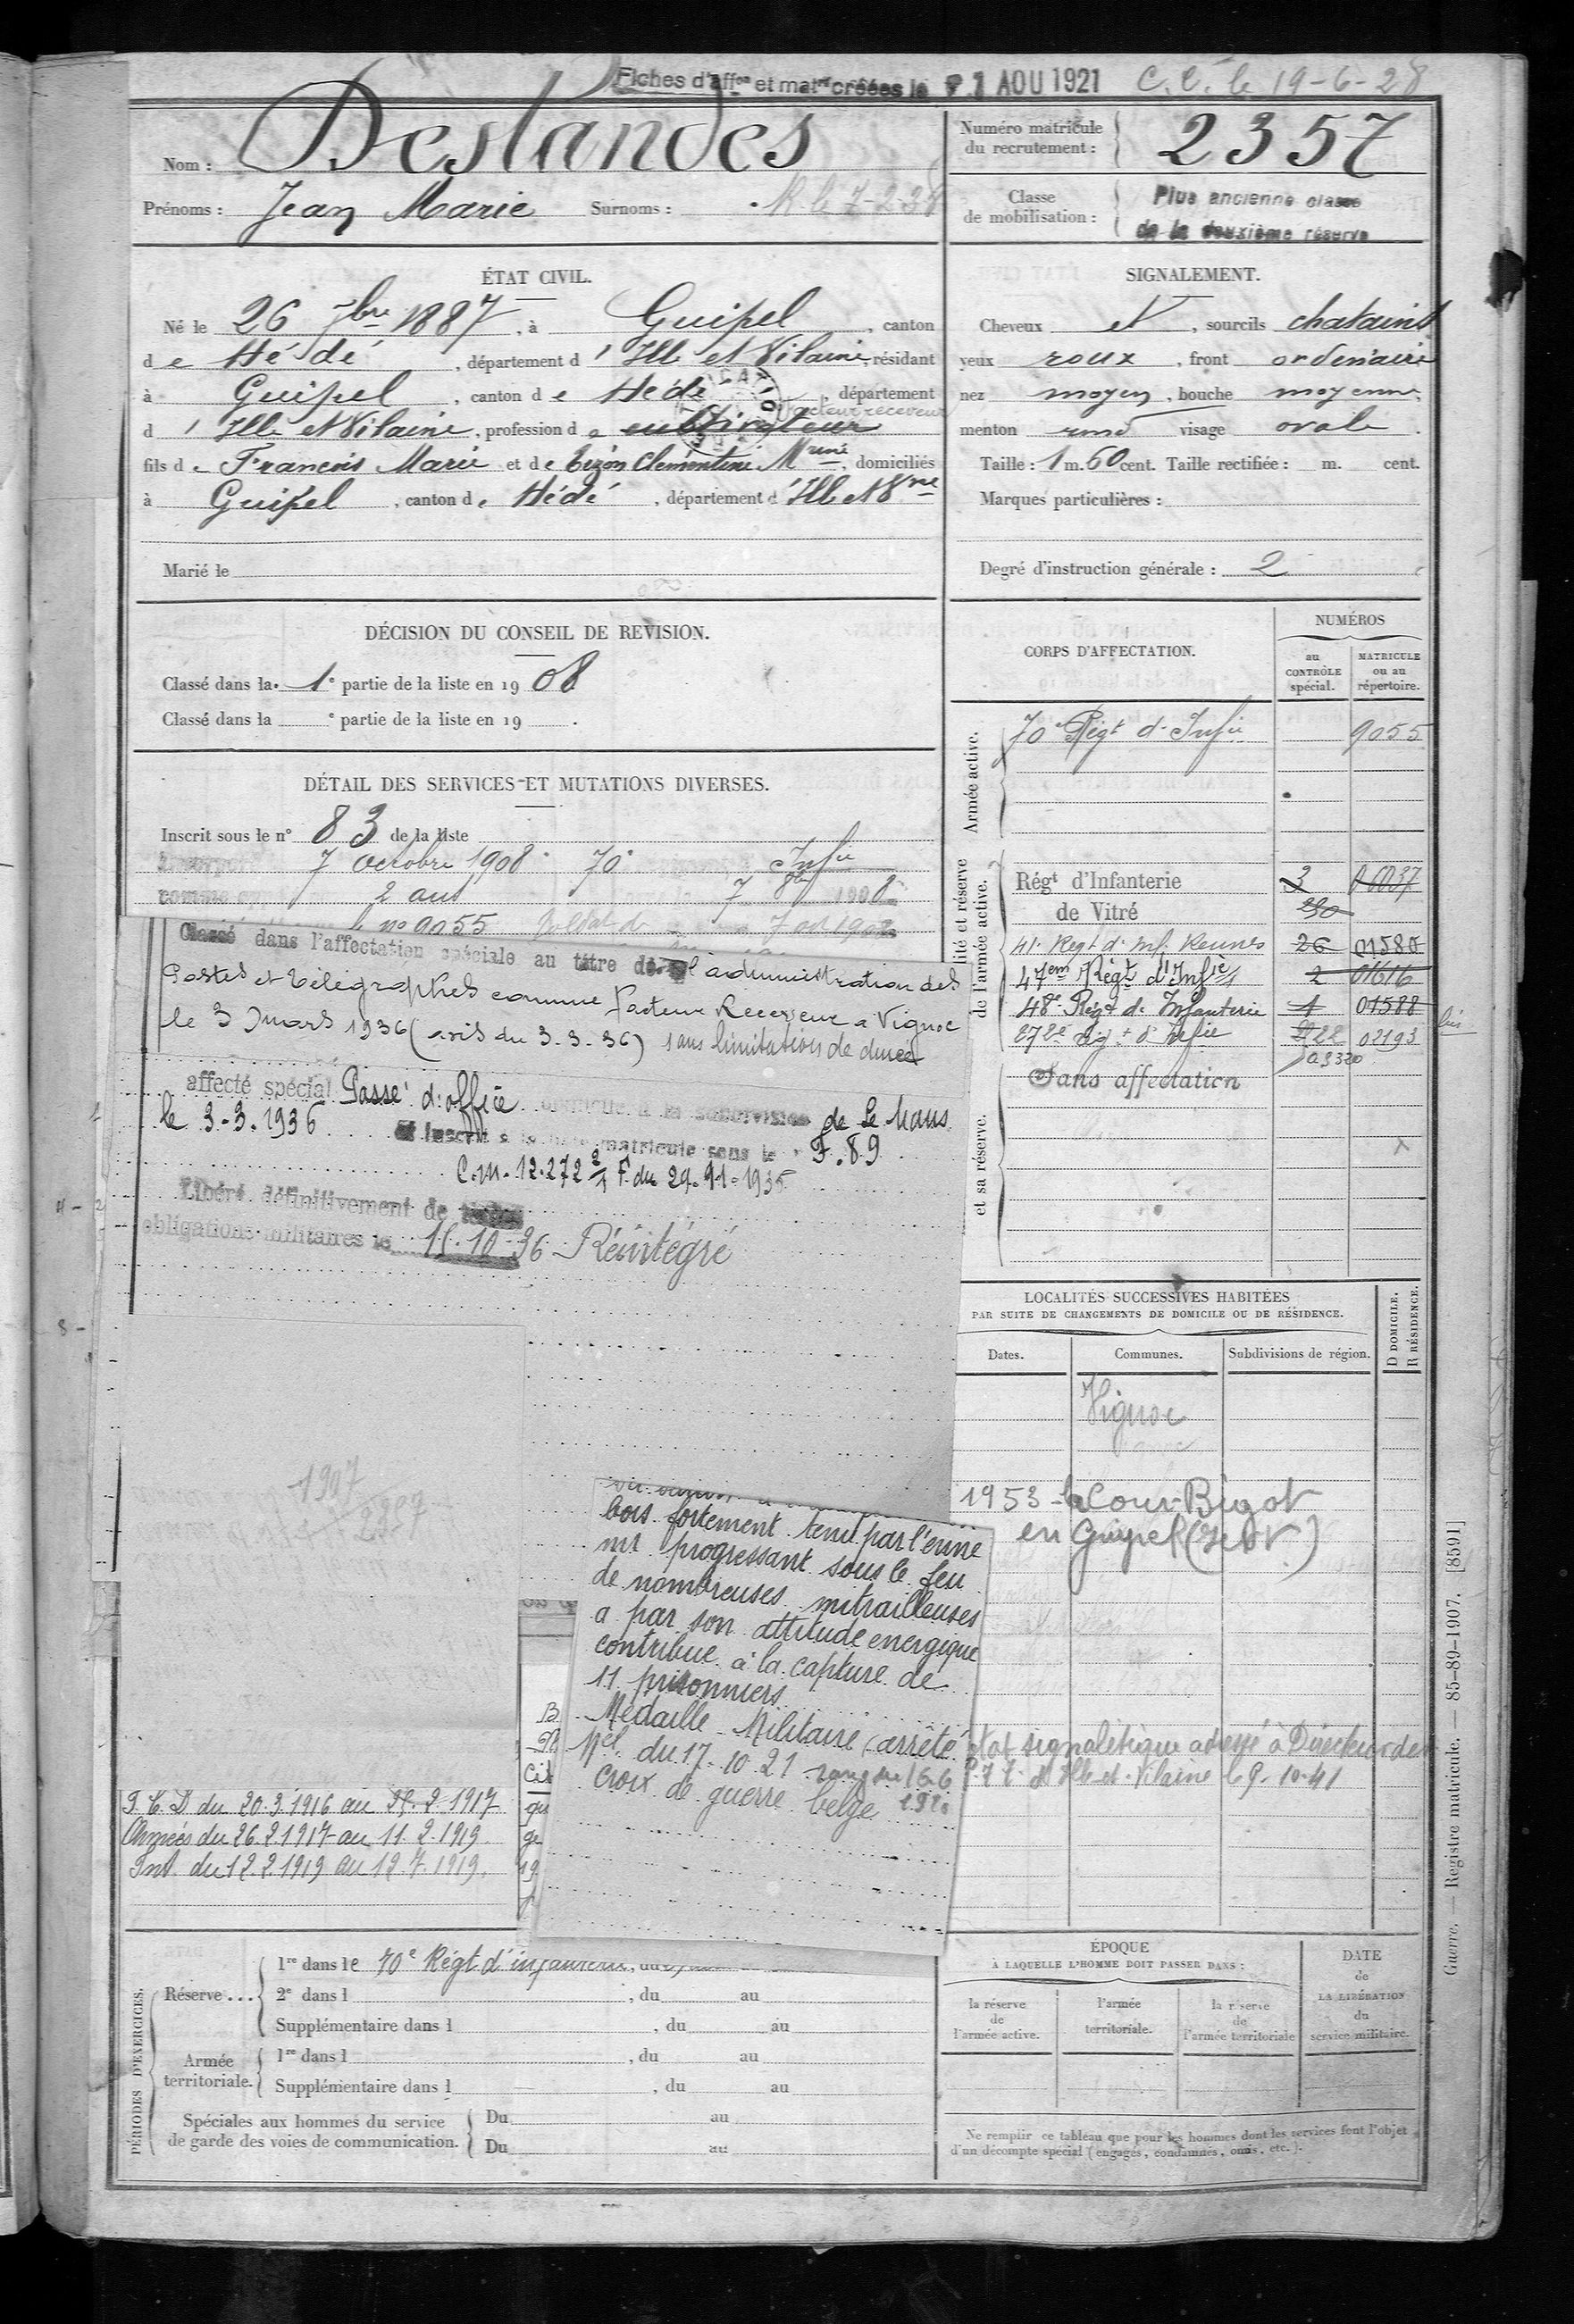 Fiches d'aff<sup>on</sup> et mat<sup>le</sup> créées le 1 AOU 1921 C.C. le 19-6-28
Nom : Deslandes
Prénoms : Jean Marie Surnoms :
Numéro matricule du recrutement : 2357
Classe de mobilisation : Plus ancienne classe
de la deuxième réserve
ÉTAT CIVIL.
Né le 26 7bre 1887, à Guipel, canton
de Hédé, département d'Ille et Vilaine, résidant
à Guipel, canton de Hédé, département
d'Ille et Vilaine, profession de cultivateur facteur receveur
fils de François Marie et de Clémentine Mrine, domiciliés
à Guipel, canton de Hédé, département d'Ille et Vne
Marié le
SIGNALEMENT.
Cheveux et, sourcils chatains
yeux roux, front ordinaire
nez moyen, bouche moyenne
menton rond visage ovale.
Taille : 1 m. 60 cent. Taille rectifiée : m. cent.
Marques particulières :
Degré d'instruction générale : 2
DÉCISION DU CONSEIL DE REVISION.
Classé dans la 1e partie de la liste en 1908
Classé dans la e partie de la liste en 19 .
DÉTAIL DES SERVICES ET MUTATIONS DIVERSES.
Inscrit sous le n° 83 de la liste
7 octobre 1908 70e Infie
2 ans 7 8bre 1908
n° 9055
Classé dans l'affectation spéciale au titre de l'administration des
Postes et Télégraphes comme facteur Receveur à Vignoc
le 3 mars 1936 (avis du 3.3.36) sans limitation de durée
affecté spécial Passé d'office de Le Mans
le 3-3.1936 matricule sous le n° F.89
C.M. 12.272 2/1 F. du 29-11-1935
Libéré définitivement de toutes
obligations militaires le 15.10.36 Réintégré
1907
bois fortement tenu par l'enne
mi progressant sous le feu
de nombreuses mitrailleuses
a par son attitude energique
contribué à la capture de
11 prisonniers.
Médaille Militaire (arrêté
Mel. du 17-10-21 rang du 16-6
Croix de guerre belge 1920
T.C.D du 20.3.1916 au 25.2.1917
Armées du 26.2.1917 au 11.2.1919.
Int. du 12.2.1919 au 12.7.1919.
CORPS D'AFFECTATION.
NUMÉROS
au CONTRÔLE spécial.
MATRICULE ou au répertoire.
Armée active.
70e Régt d'Infie 9055
de l'armée active.
Régt d'Infanterie de Vitré
41e Regt d'inf. Rennes 26 01580
47em Régt d'Infie 2 01616
48e Régt de Infanterie 1 01588
02193
et sa réserve.
Sans affectation
LOCALITÉS SUCCESSIVES HABITÉES
PAR SUITE DE CHANGEMENTS DE DOMICILE OU DE RÉSIDENCE.
D DOMICILE.
R RÉSIDENCE.
Dates. Communes. Subdivisions de région.
Vignoc
1953 la Cour Bigot
en Guipel (I et V)
état signalétique adressé à Directeur des
P.T.T. d'Ille-et-Vilaine le 9-10-41
PÉRIODES D'EXERCICES.
Réserve ...
1re dans le 70e Régt d'infanterie, du
2e dans l , du au
Supplémentaire dans l , du au
Armée territoriale.
1re dans l , du au
Supplémentaire dans l , du au
Spéciales aux hommes du service
de garde des voies de communication.
Du au
Du au
ÉPOQUE
À LAQUELLE L'HOMME DOIT PASSER DANS :
la réserve de l'armée active.
l'armée territoriale.
la réserve de l'armée territoriale
DATE de LA LIBÉRATION du service militaire.
Ne remplir ce tableau que pour les hommes dont les services font l'objet
d'un décompte spécial (engagés, condamnés, omis, etc.).
Guerre. — Registre matricule. — 85-89-1907. [8591]